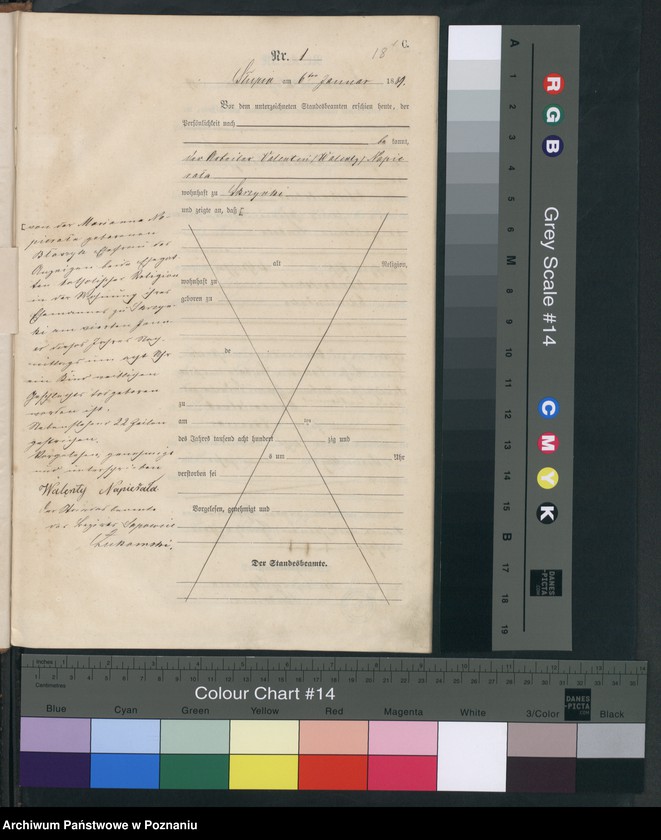 C.
Nr. 1
18
Slupca am 6ten Januar 1889.
Vor dem unterzeichneten Standesbeamten erschien heute, der
Persönlichkeit nach
be kannt,
der Arbeiter Valentin (Walenty) Napie
rala
wohnhaft zu
und zeigte an, daß [
[von der Marianna Na-
pierala geborenen
Ehefrau des
Anzeigers beide Ehegat
ten katholischer Religion
in der Wohnung ihres
Ehemannes zu
am vierten Janu
ar dieses Jahres Nach
mittags um acht Uhr
ein Kind weiblichen
Geschlechts todtgeboren
worden ist.
Nebenstehende 22 Zeilen
gestrichen.
Vorgelesen, genehmigt
und unterschrieben
Walenty Napierała
Der Standesbeamte
des Bezirks
alt Religion,
wohnhaft zu
geboren zu
de
zu
am ten
des Jahres tausend acht hundert zig und
s um Uhr
verstorben sei
Vorgelesen, genehmigt und
Der Standesbeamte.
A 1 2 3 4 5 6 M 8 9 10 11 12 13 14 15 B 17 18 19
R G B
Grey Scale #14
C M Y K
DANES-PICTA.COM
Inches 1 2 3 4 5 6 7 8 9 10 11 12 13 14
Centimetres 1 2 3 4 5 6 7 8 9 10 11 12 13 14 15 16 17 18 19 20 21 22 23 24 25 26 27 28 29 30 31 32 33 34 35
Colour Chart #14
DANES-PICTA.COM
Blue Cyan Green Yellow Red Magenta White 3/Color Black
Archiwum Państwowe w Poznaniu